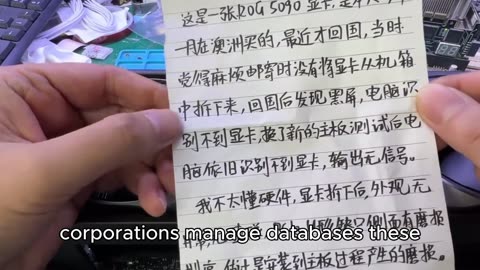 这是一张ROG 5090 显卡,是
一月在澳洲买的,最近才回国,当时
觉得麻烦邮寄时没有将显卡从机箱
中拆下来,回国后发现黑屏,电脑识
别不到显卡,换了新的主板测试后电
脑依旧识别不到显卡,输出无信号。
我不太懂硬件,显卡拆下后,外观无
侧面有磨损
是安装到主板过程产生的磨损。
corporations manage databases these